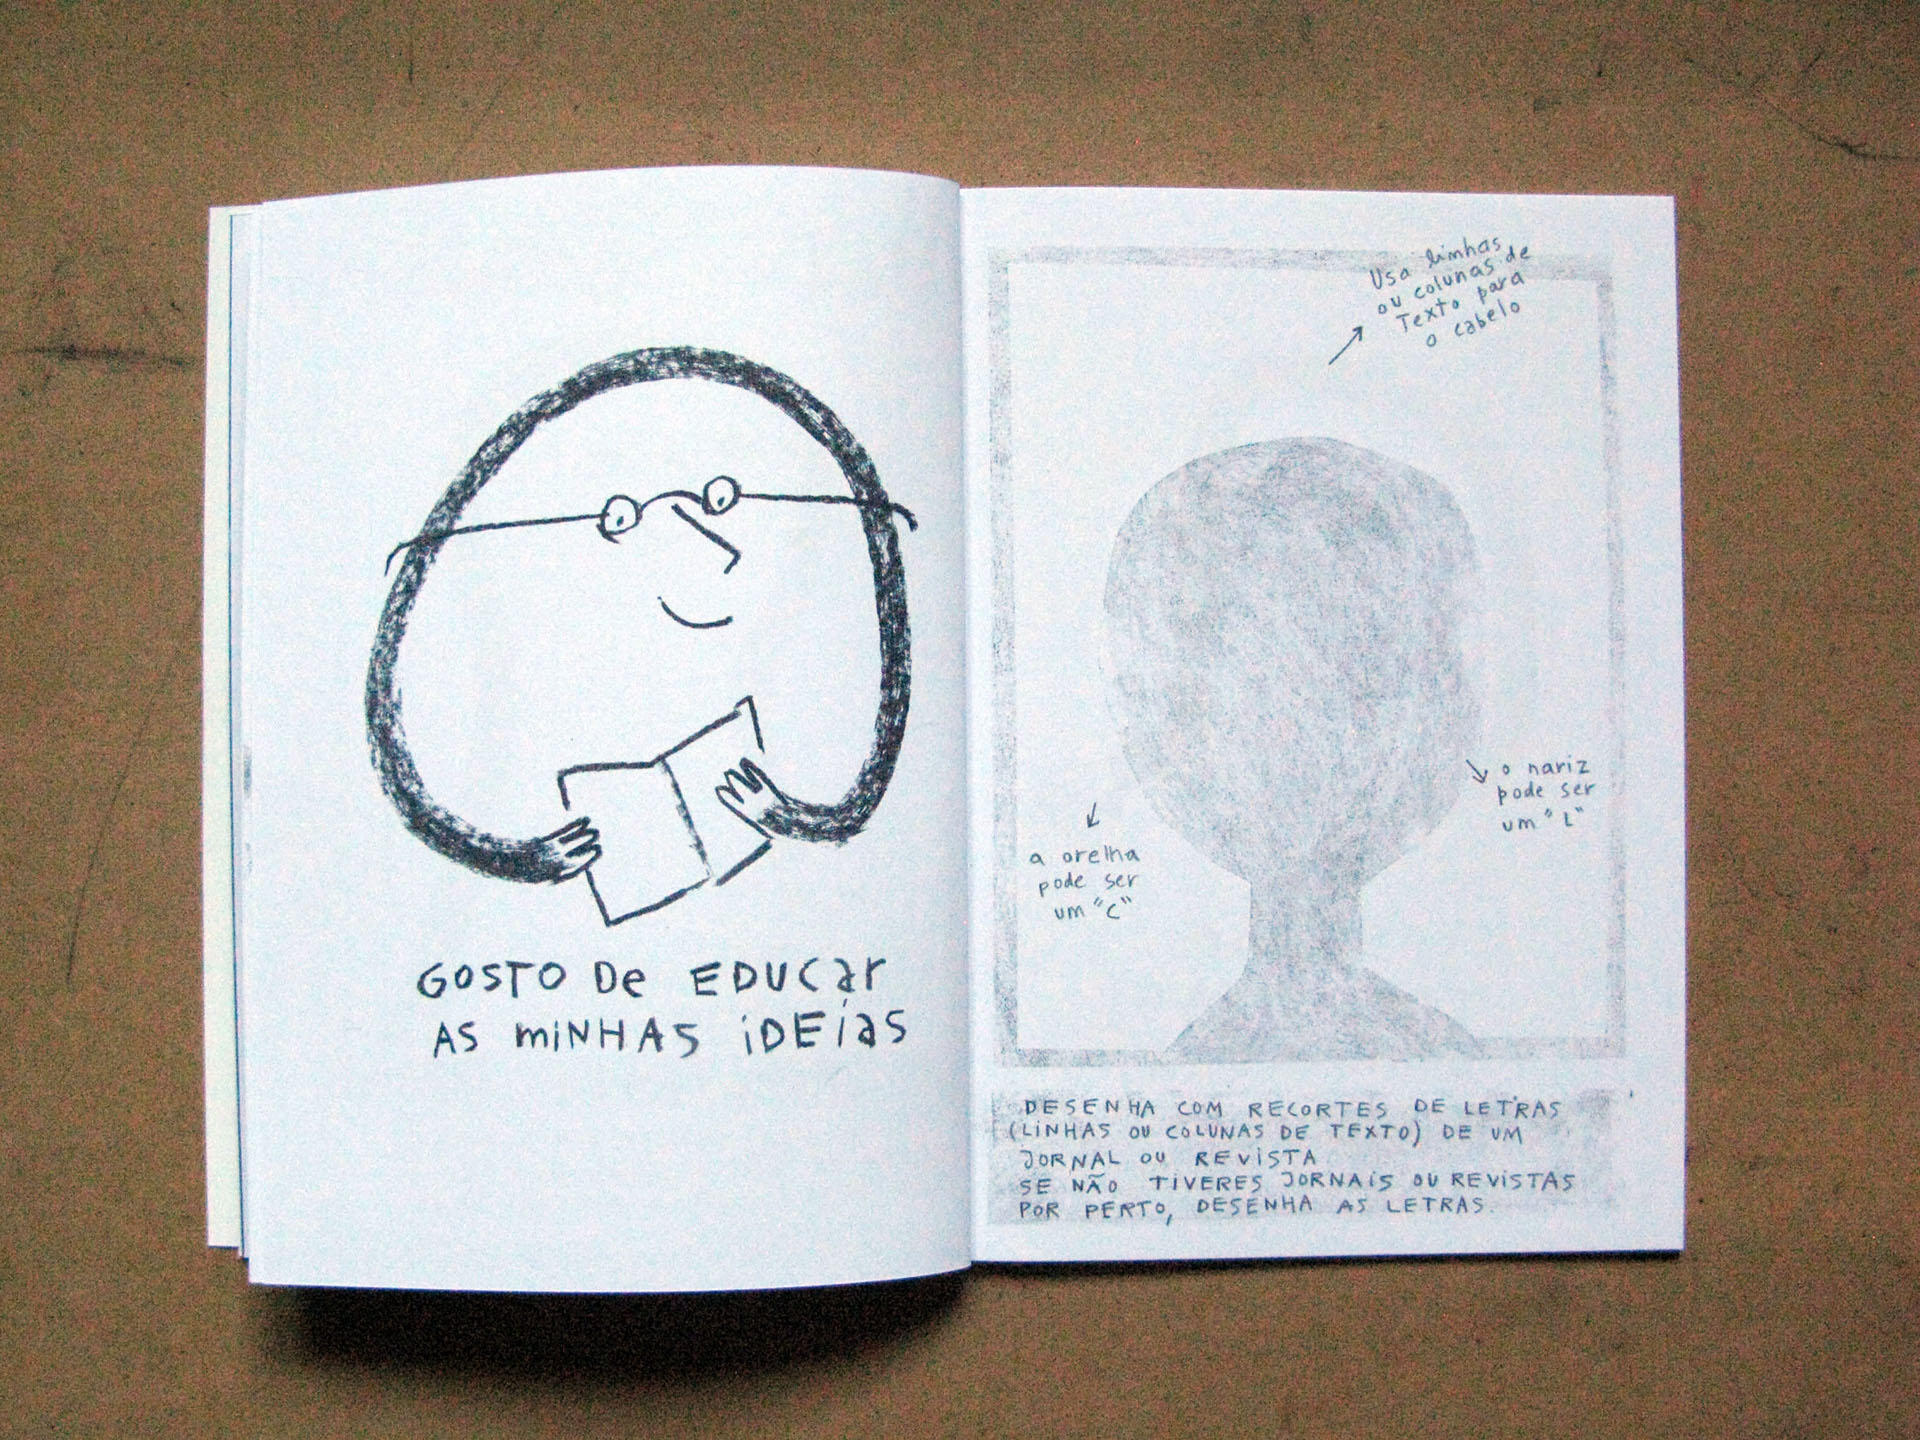 GOSTO De EDUCar
AS miNHAS iDEíaS
Usa linhas
ou colunas de
Texto para
o cabelo
o nariz
pode ser
um "L"
a orelha
pode ser
um "C"
DESENHA COM RECORTES DE LETRAS
(LINHAS OU COLUNAS DE TEXTO) DE UM
JORNAL OU REVISTA
SE NÃO TIVERES JORNAIS OU REVISTAS
POR PERTO, DESENHA AS LETRAS.